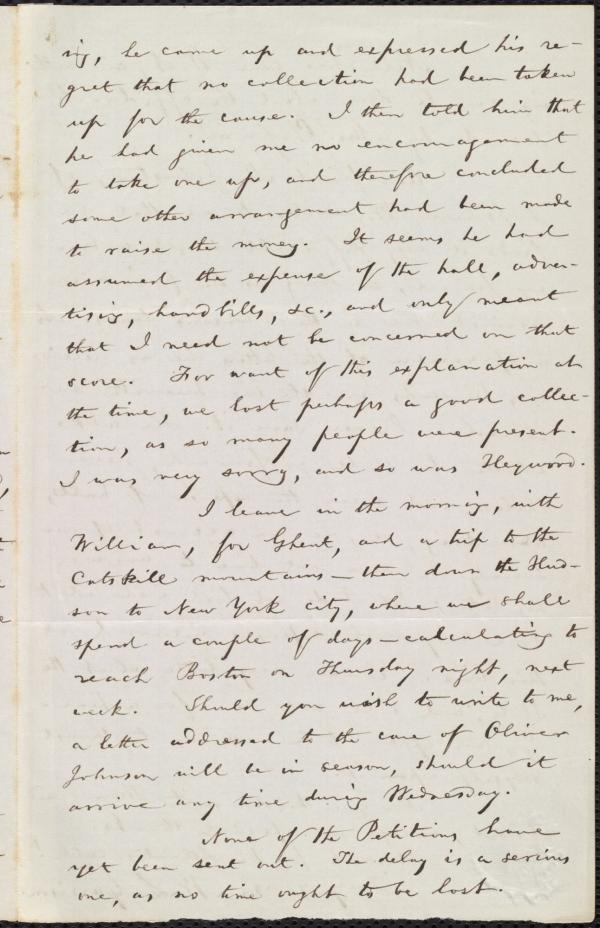 ing, he came up and expressed his re-
gret that no collection had been taken
up for the cause. I then told him that
he had given me no encouragement
to take one up, and therefore concluded
some other arrangement had been made
to raise the money. It seems he had
assumed the expense of the hall, adver-
tising, handbills, &c., and only meant
that I need not be concerned on that
score. For want of this explanation at
the time, we lost perhaps a good collec-
tion, as so many people were present.
I was very sorry, and so was Heywood.
I leave in the morning, with
William, for Ghent, and a trip to the
Catskill mountains — then down the Hud-
son to New York city, where we shall
spend a couple of days — calculating to
reach Boston on Thursday night, next
week. Should you wish to write to me,
a letter addressed to the care of Oliver
Johnson will be in season, should it
arrive any time during Wednesday.
None of the Petitions have
yet been sent out. The delay is a serious
one, as no time ought to be lost.